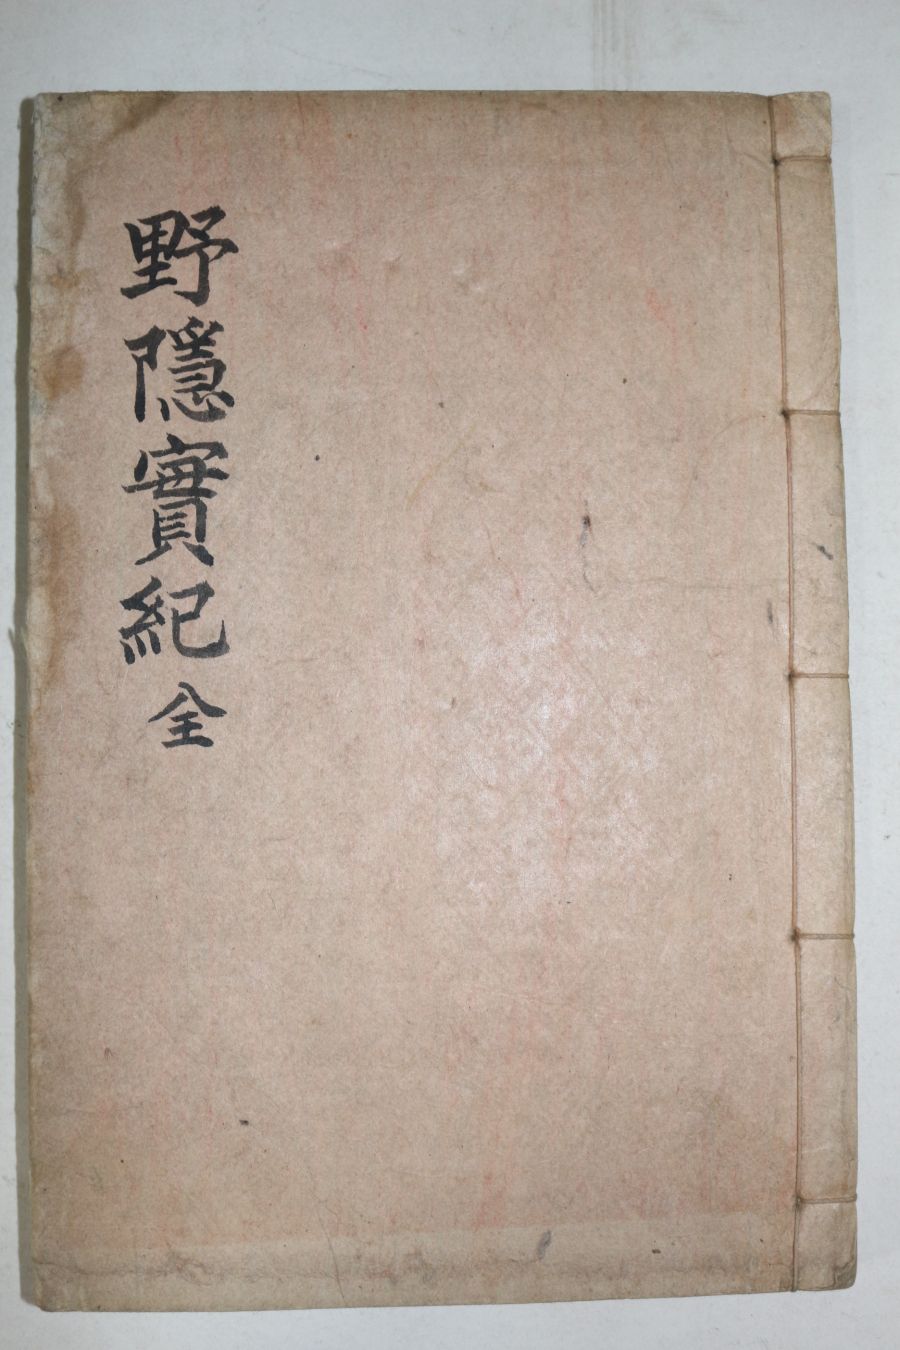 野隱實紀 全